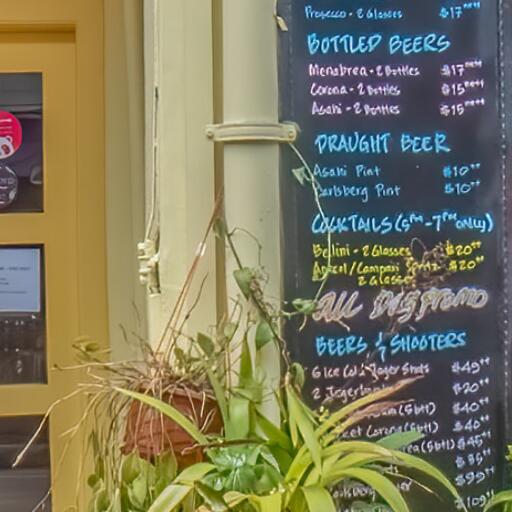 Prosecco - 2 Glasses $17++
BOTTLED BEERS
Menabrea - 2 Bottles $17++
Corona - 2 Bottles $15++
Asahi - 2 Bottles $15++
DRAUGHT BEER
Asahi Pint $10++
Carlsberg Pint $10++
COCKTAILS (5PM - 7PM ONLY)
Bellini - 2 Glasses $20++
Aperol / Campari Spritz $20++
2 Glasses
ALL DAY PROMO
BEERS & SHOOTERS
6 Ice Cold Jager Shots $49++
2 Jagerbombs $20++
(5btl) $40++
Corona (5btl) $40++
(5btl) $45++
$85++
$99++
$109++